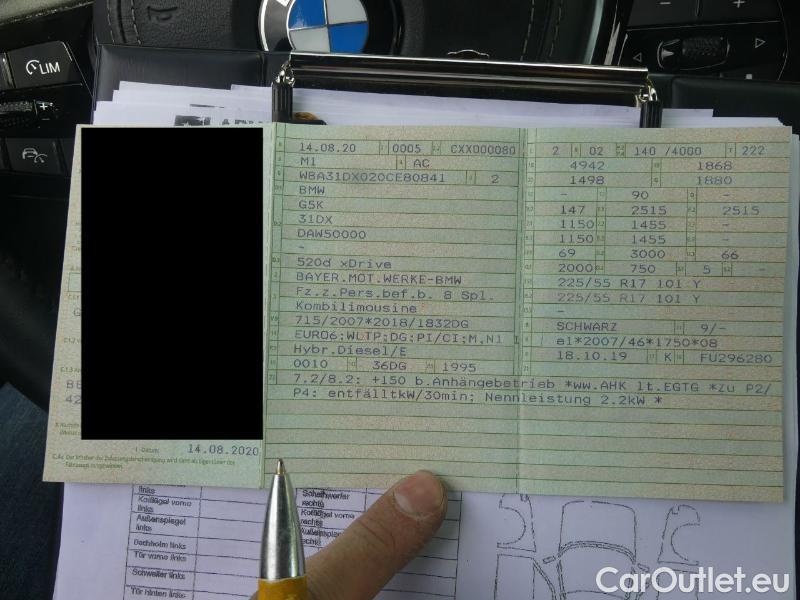 LIM
14.08.20 0005 CXX000080
M1 AC
WBA31DX020CE80841 2
BMW
G5K
31DX
DAW50000
-
520d xDrive
BAYER.MOT.WERKE-BMW
Fz.z.Pers.bef.b. 8 Spl.
Kombilimousine
715/2007*2018/1832DG
EURO6;WLTP;DG;PI/CI;M,N1 I
Hybr.Diesel/E
0010 36DG 1995
2 02 140 /4000 222
4942 1868
1498 1880
- 90 -
147 2515 2515
1150 1455 -
1150 1455 -
69 3000 66
2000 750 5 -
225/55 R17 101 Y
225/55 R17 101 Y
-
SCHWARZ 9/-
e1*2007/46*1750*08
18.10.19 K FU296280
7.2/8.2: +150 b.Anhängebetrieb *ww.AHK lt.EGTG *Zu P2/
P4: entfälltkW/30min; Nennleistung 2.2kW *
14.08.2020
C.4c Der Inhaber der Zulassungsbescheinigung wird nicht als Eigentümer des
Fahrzeugs ausgewiesen.
links
Kotflügel vorne
links
Außenspiegel
links
Dachholm links
Tür vorne links
Schweller links
Tür hinten links
Scheinwerfer
rechts
Kotflügel vorne
rechts
Außenspiegel
rechts
CarOutlet.eu